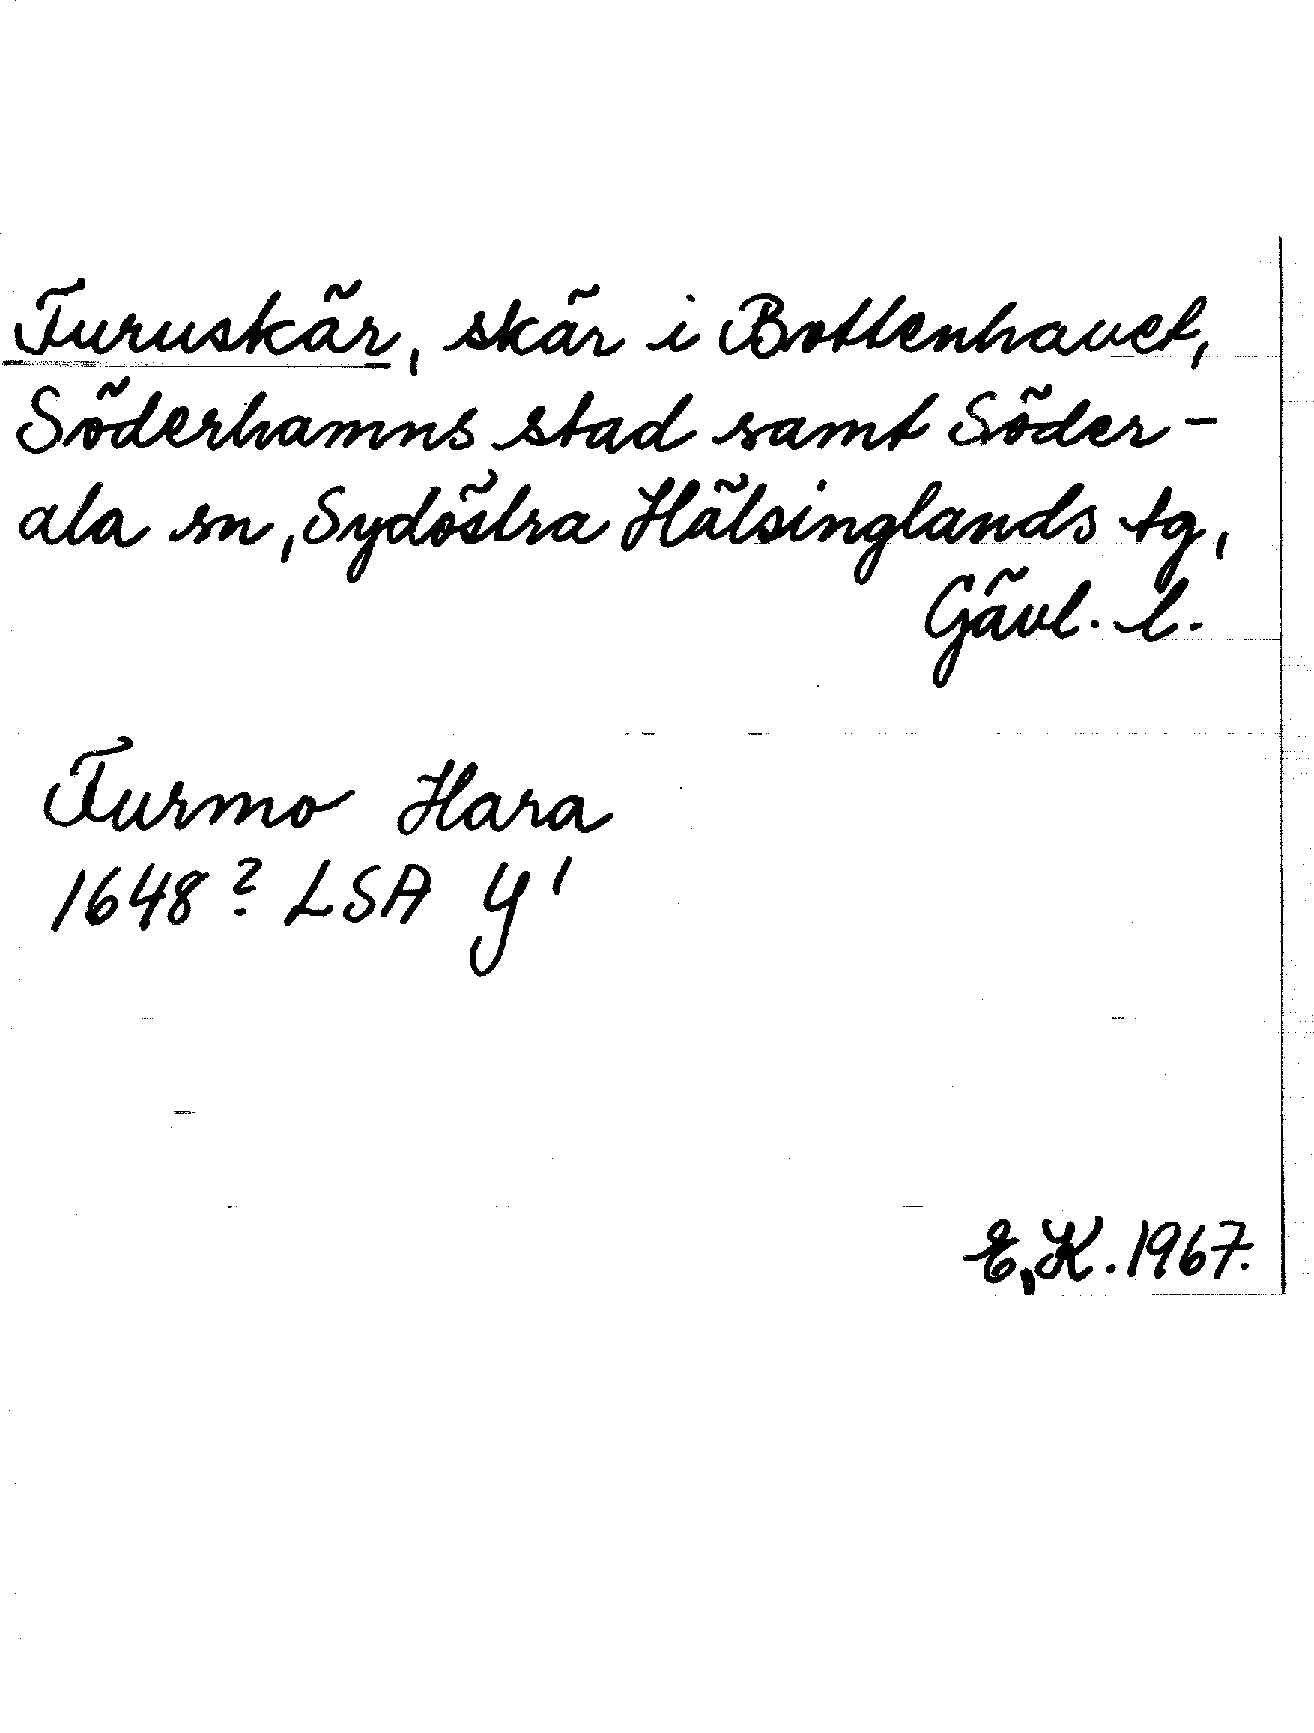 Furuskär, skär i Bottenhavet,
Söderhamns stad samt Söder-
ala sn, Sydöstra Hälsinglands tg,
Gävl. l.
Furmo Hara
1648? LSA Y1
E.K. 1967.